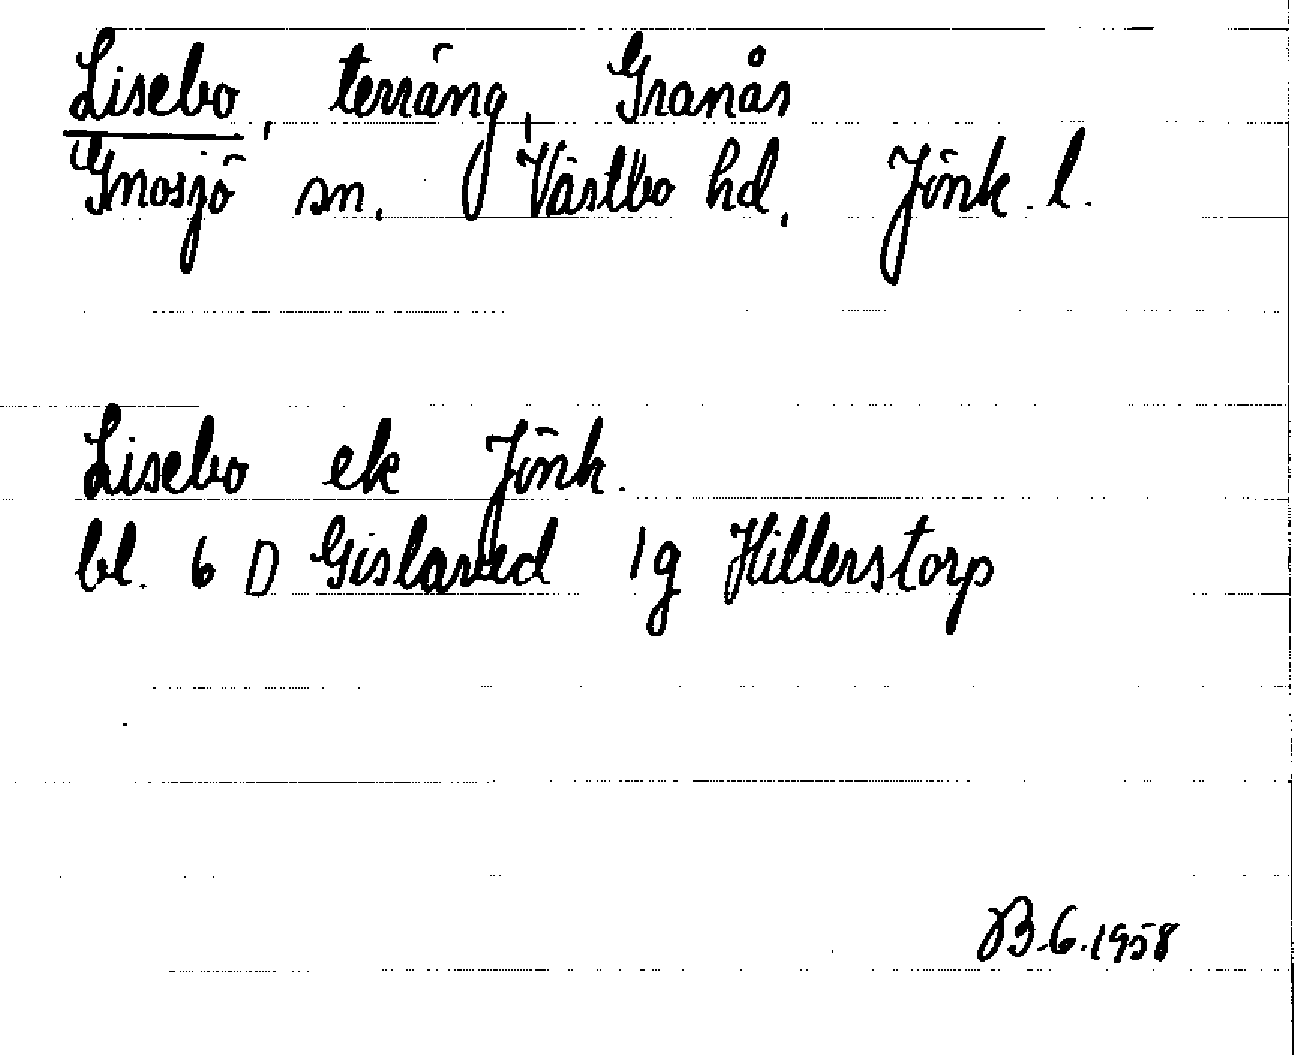 Lisebo, terräng, Granås
Gnosjö sn. Västbo hd. Jönk. l.
Lisebo ek Jönk.
bl. 6 D Gislaved 1g Hillerstorp
B.G. 1958